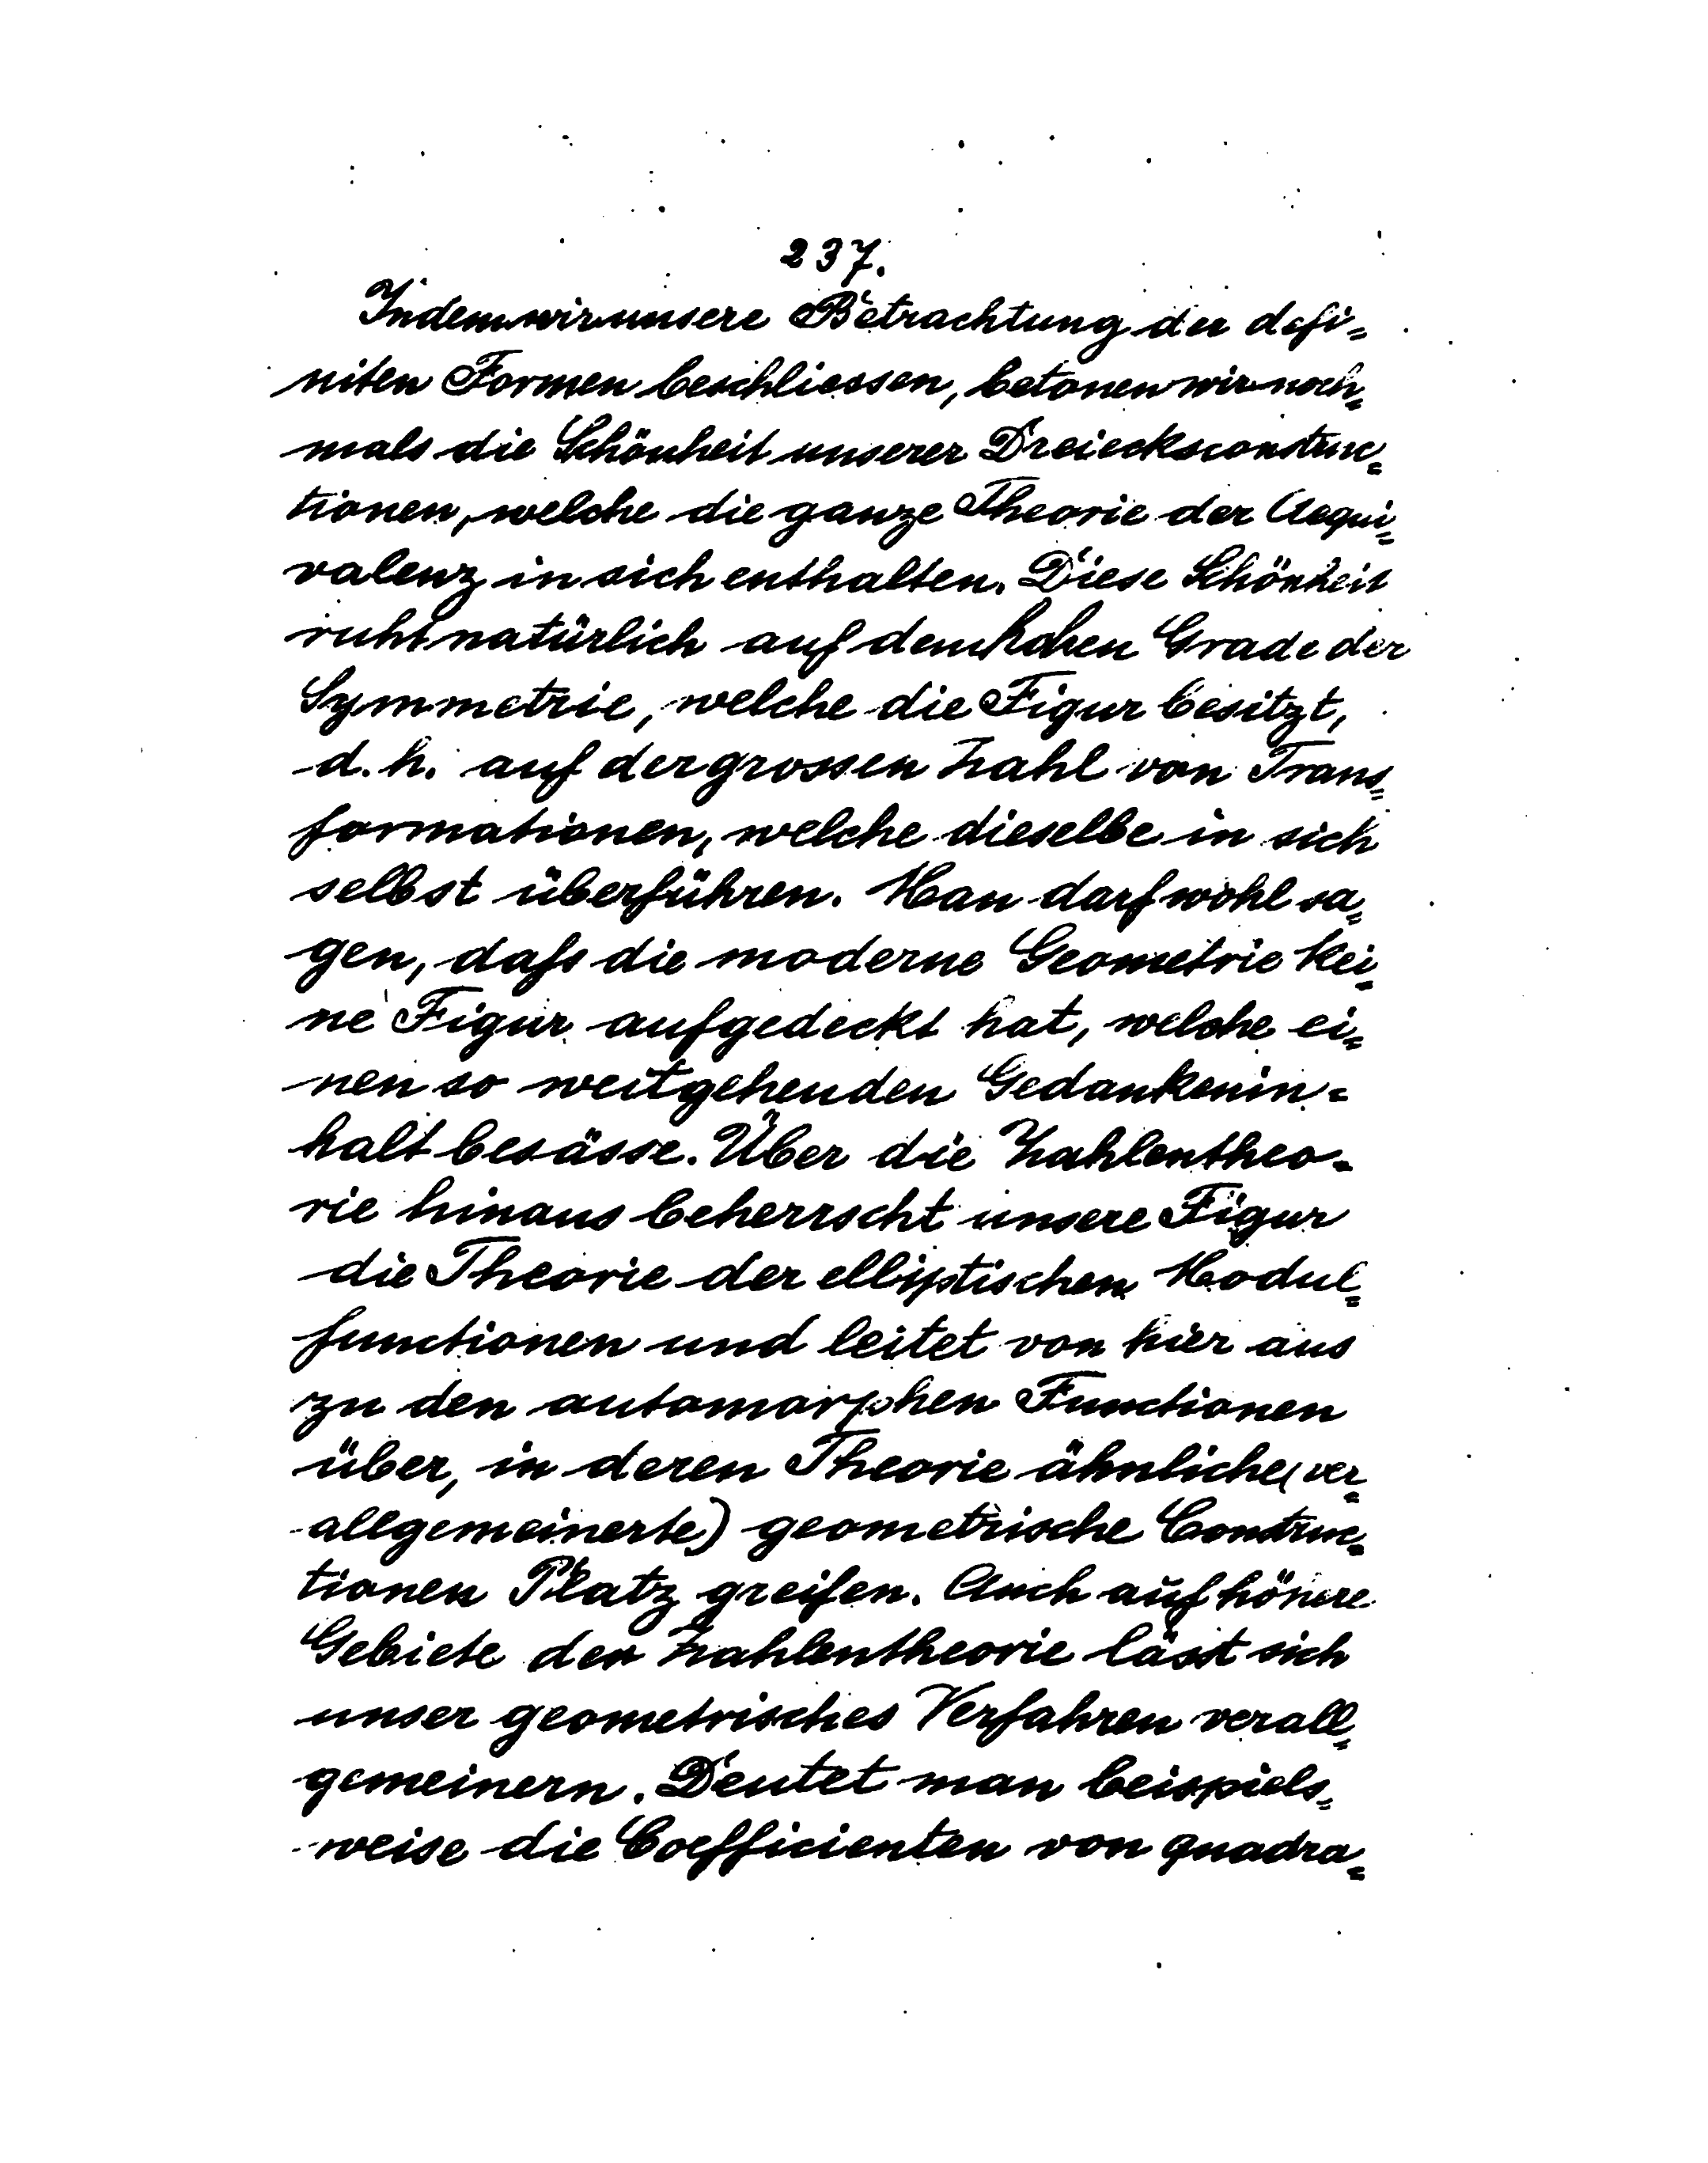 237.
Indem wir unsere Betrachtung der defi=
niten Formen beschliessen, betonen wir noch=
mals die Schönheit unserer Dreiecksconstruc=
tionen, welche die ganze Theorie der Aequi=
valenz in sich enthalten. Diese Schönheit
ruht natürlich auf dem hohen Grade der
Symmetrie, welche die Figur besitzt,
d.h. auf der grossen Zahl von Trans=
formationen, welche dieselbe in sich
selbst überführen. Man darf wohl sa=
gen, daſs die moderne Geometrie kei=
ne Figur aufgedeckt hat, welche ei=
nen so weitgehenden Gedankenin=
halt besässe. Über die Zahlentheo=
rie hinaus beherrscht unsere Figur
die Theorie der elliptischen Modul=
functionen und leitet von hier aus
zu den automorphen Functionen
über, in deren Theorie ähnliche (ver=
allgemeinerte) geometrische Construc=
tionen Platz greifen. Auch auf höhere
Gebiete der Zahlentheorie lässt sich
unser geometrisches Verfahren verall=
gemeinern. Deutet man beispiels=
weise die Coefficienten von quadra=